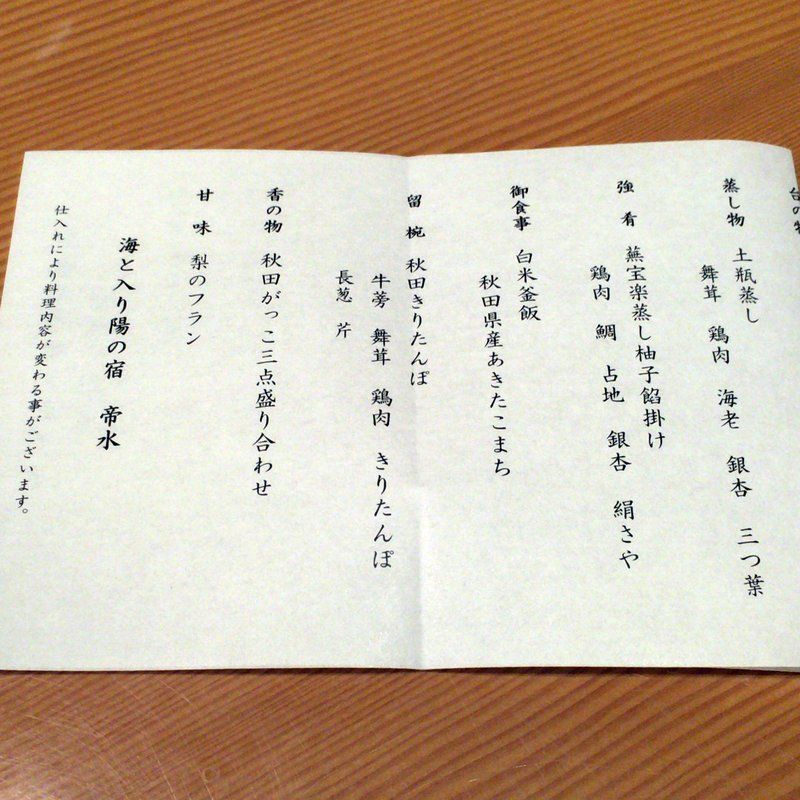 台の物
蒸し物 土瓶蒸し
舞茸 鶏肉 海老 銀杏 三つ葉
強肴 蕪宝楽蒸し柚子餡掛け
鶏肉 鯛 占地 銀杏 絹さや
御食事 白米釜飯
秋田県産あきたこまち
留椀 秋田きりたんぽ
牛蒡 舞茸 鶏肉 きりたんぽ
長葱 芹
香の物 秋田がっこ三点盛り合わせ
甘味 梨のフラン
海と入り陽の宿 帝水
仕入れにより料理内容が変わる事がございます。